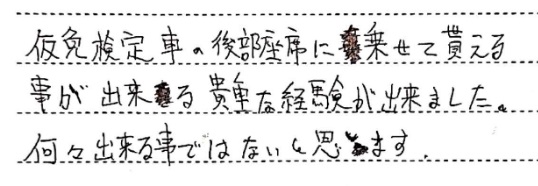 仮免検定車の後部座席に乗せて貰える
事が出来る貴重な経験が出来ました。
何々出来る事ではないと思います.